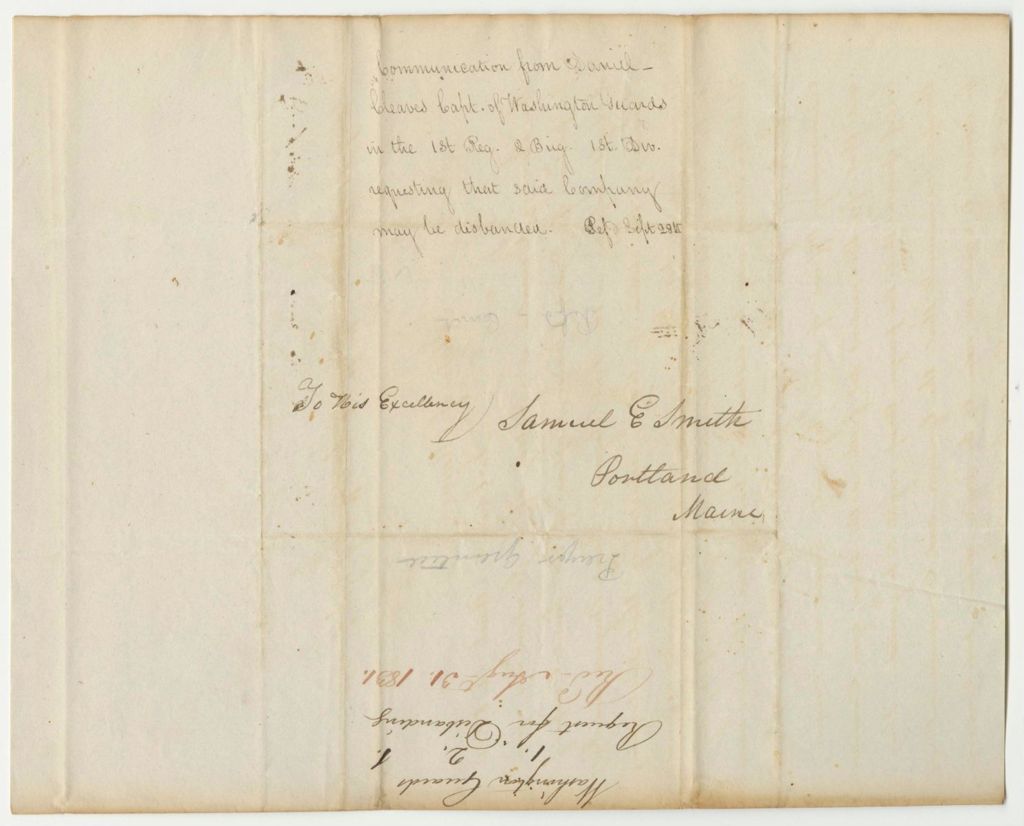 Communication from Daniel
Cleaves Capt. of Washington Guards
in the 1st Reg. 2 Brig. 1st Div.
requesting that said Company
may be disbanded. Ref Sept 28th
To His Excellency
Samuel E Smith
Portland
Maine
Prayer Granted
Aug 31. 1831.
Request for Disbanding
1. 2. 1.
Washington Guards